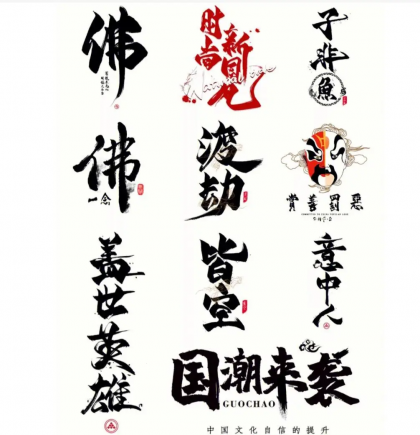 佛
时尚新国风
子非魚
佛
一念
渡劫
賞善罰惡
盖世英雄
皆空
意中人
国潮来袭
GUOCHAO
中国文化自信的提升